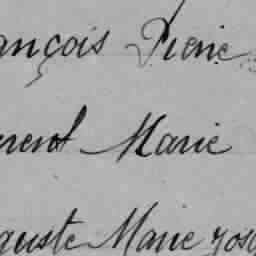 ançois Pierre
urent Marie
guste Marie Jos